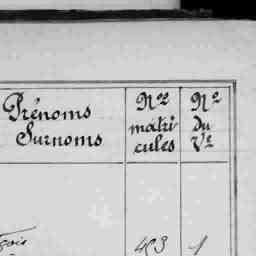 Prénoms Surnoms
Nos matricules
No du Ve
453 1